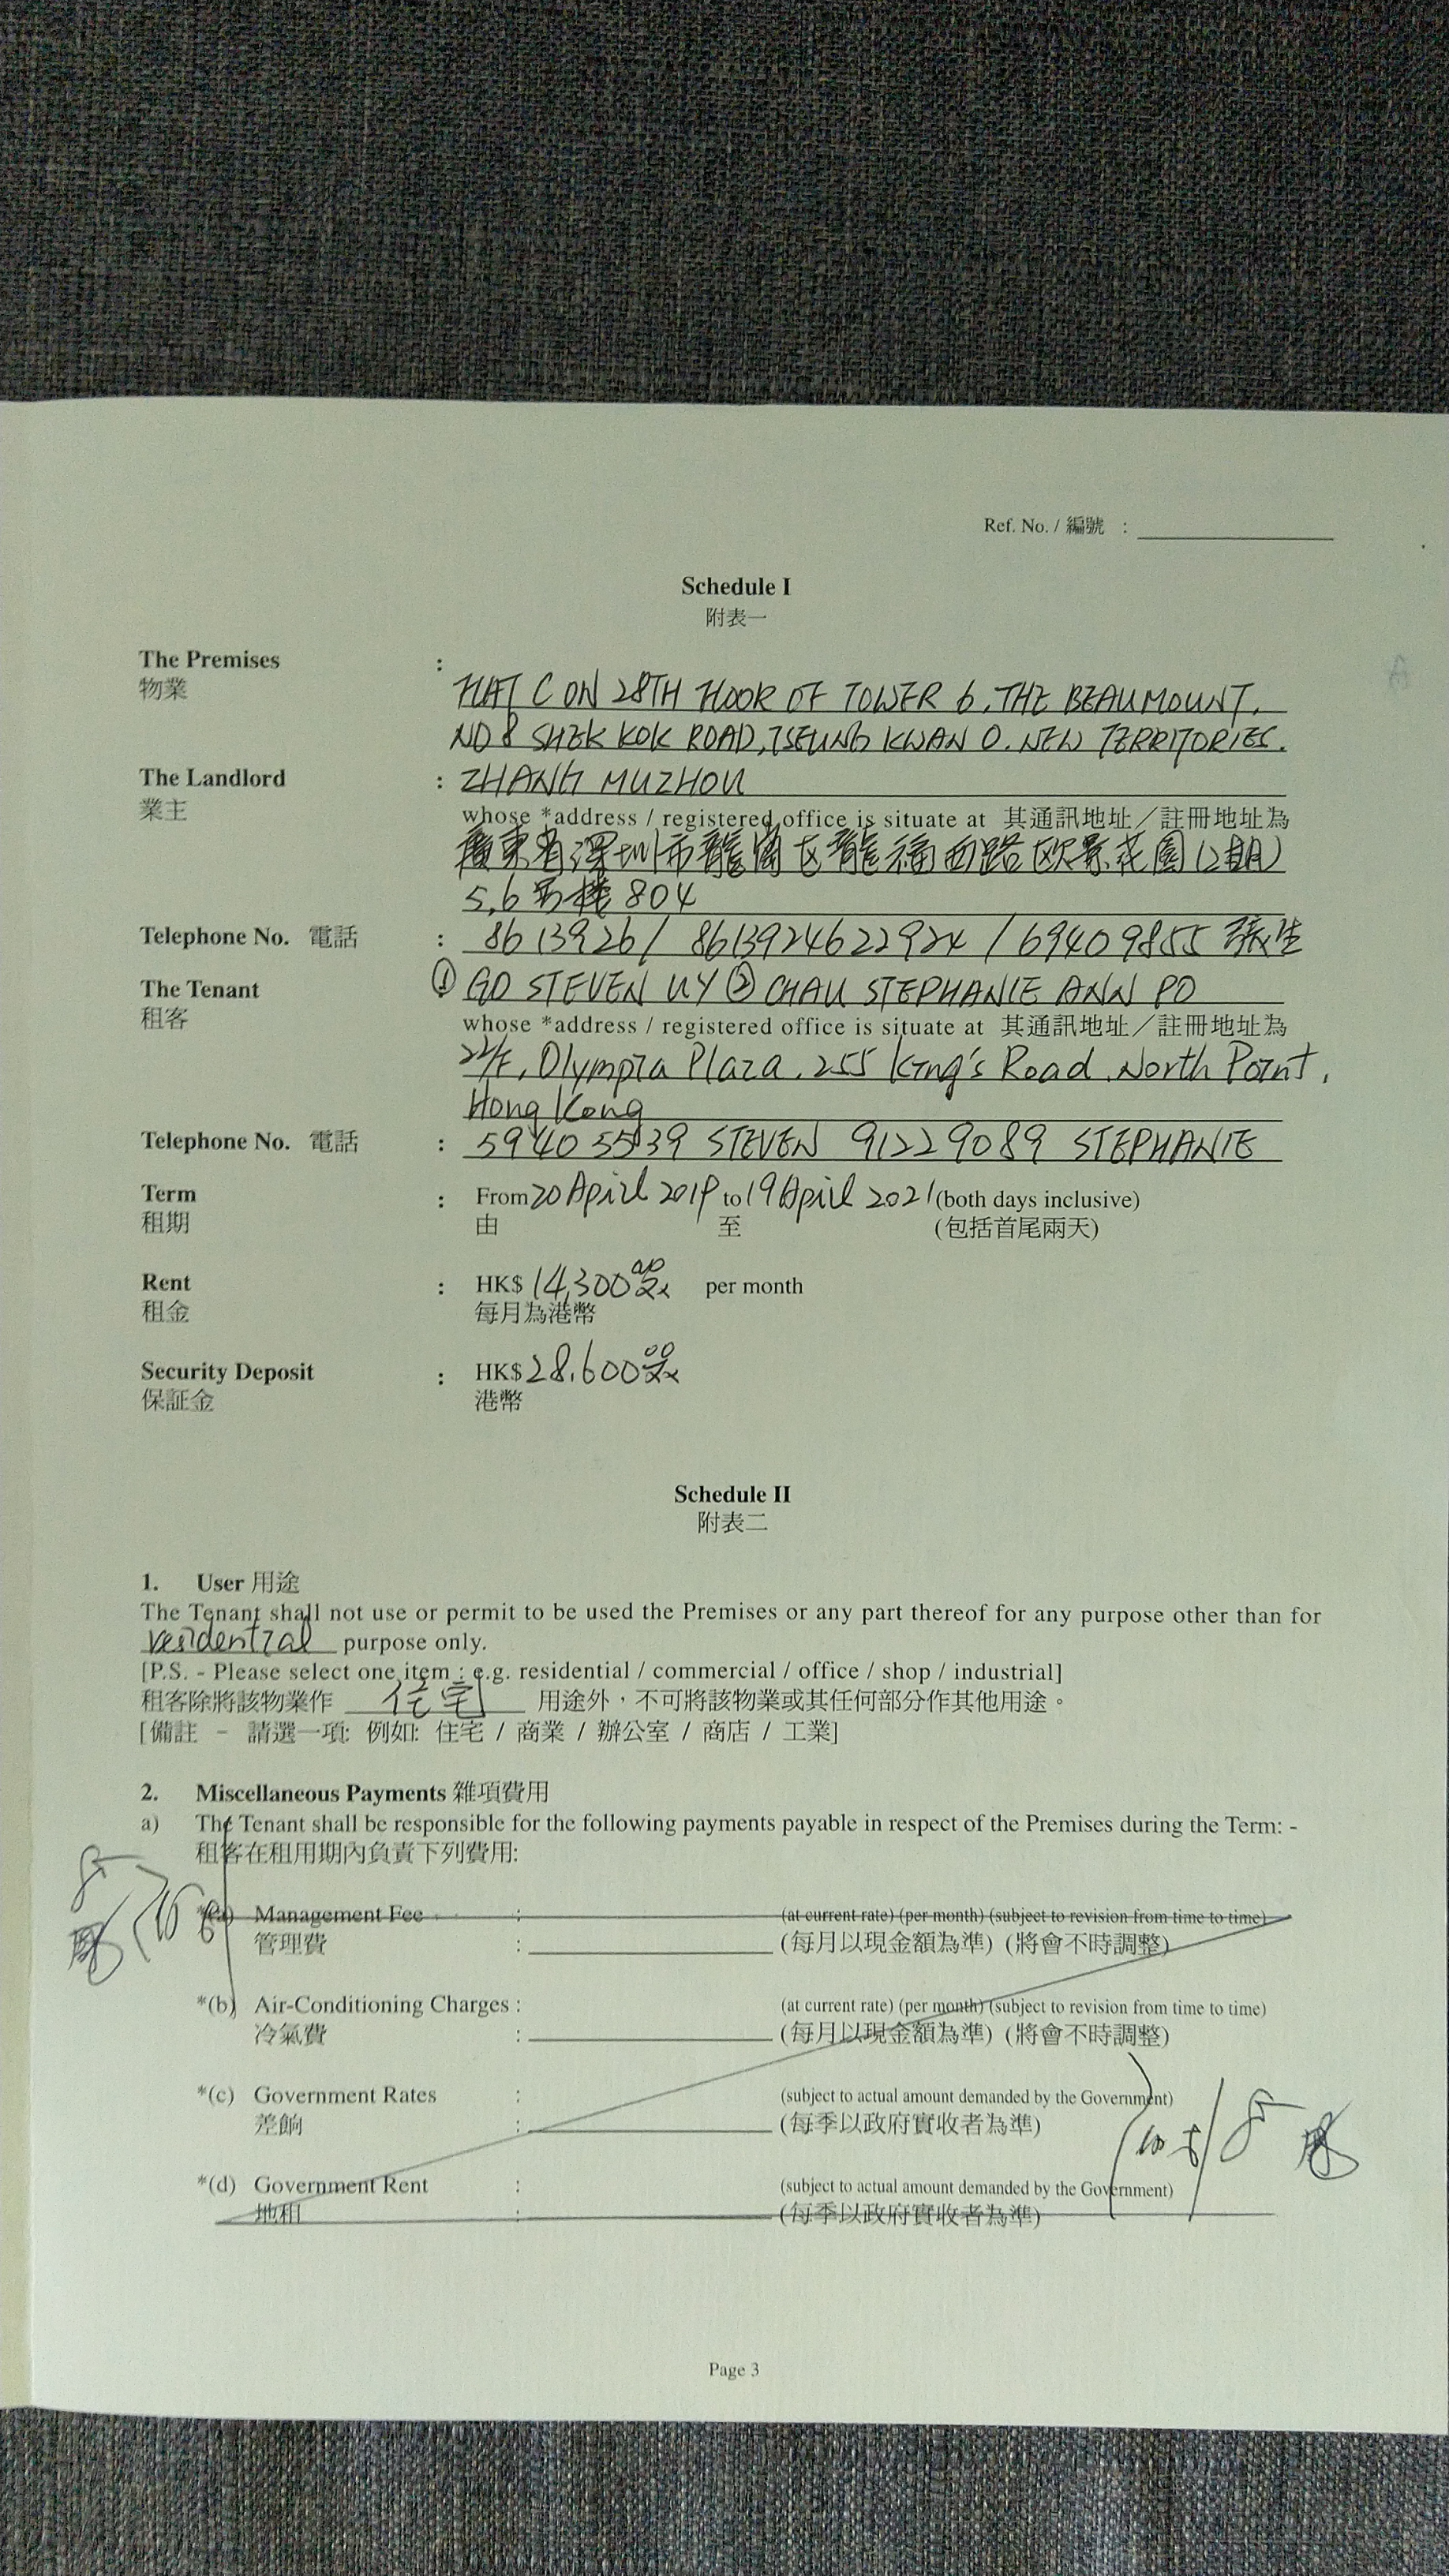 Ref. No. / 編號 :
Schedule I
附表一
The Premises :
物業
FLAT C ON 28TH FLOOR OF TOWER 6, THE BEAUMOUNT,
NO 8 SHEK KOK ROAD, TSEUNG KWAN O. NEW TERRITORIES.
The Landlord : ZHANG MUZHOU
業主
whose *address / registered office is situate at 其通訊地址／註冊地址為
廣東省深圳市龍崗区龍福西路欧景花園(2期)
5,6号楼 804
Telephone No. 電話 : 8613926 / 8613924622924 / 69409855 張生
The Tenant ① GO STEVEN UY ② CHAU STEPHANIE ANN PO
租客
whose *address / registered office is situate at 其通訊地址／註冊地址為
22/F, Olympia Plaza, 255 King's Road, North Point,
Hong Kong
Telephone No. 電話 : 59405539 STEVEN 91229089 STEPHANIE
Term : From 20 April 2019 to 19 April 2021 (both days inclusive)
租期 由 至 (包括首尾兩天)
Rent : HK$ 14,300 00/xx per month
租金 每月為港幣
Security Deposit : HK$ 28,600 00/xx
保証金 港幣
Schedule II
附表二
1. User 用途
The Tenant shall not use or permit to be used the Premises or any part thereof for any purpose other than for
residential purpose only.
[P.S. - Please select one item : e.g. residential / commercial / office / shop / industrial]
租客除將該物業作 住宅 用途外，不可將該物業或其任何部分作其他用途。
[備註 - 請選一項: 例如: 住宅 / 商業 / 辦公室 / 商店 / 工業]
2. Miscellaneous Payments 雜項費用
a) The Tenant shall be responsible for the following payments payable in respect of the Premises during the Term: -
租客在租用期內負責下列費用:
*(a) Management Fee : (at current rate) (per month) (subject to revision from time to time)
管理費 : (每月以現金額為準) (將會不時調整)
*(b) Air-Conditioning Charges : (at current rate) (per month) (subject to revision from time to time)
冷氣費 : (每月以現金額為準) (將會不時調整)
*(c) Government Rates : (subject to actual amount demanded by the Government)
差餉 : (每季以政府實收者為準)
*(d) Government Rent : (subject to actual amount demanded by the Government)
地租 : (每季以政府實收者為準)
Page 3